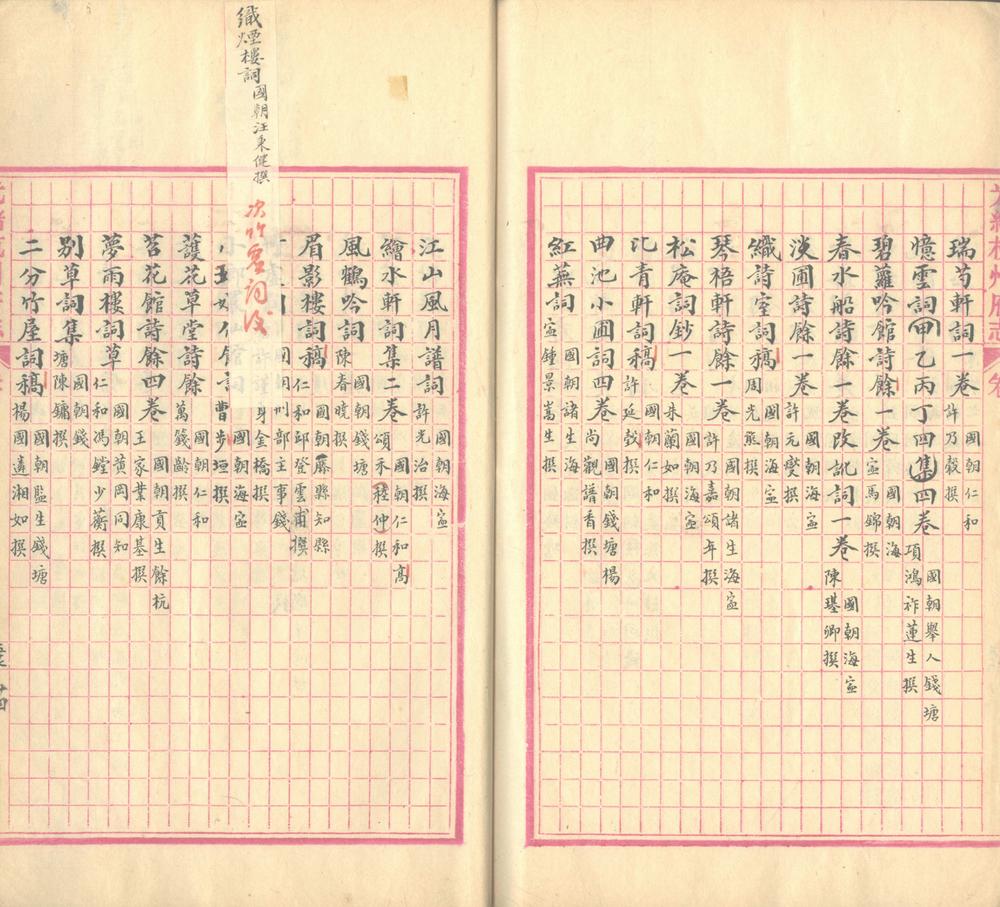 瑞芍軒詞一卷 國朝仁和許乃穀撰
憶雲詞甲乙丙丁四集四卷 國朝舉人錢塘項鴻祚蓮生撰
碧蘿吟館詩餘一卷 國朝海寍馬錦撰
春水船詩餘一卷改訛詞一卷 國朝海寍陳璂卿撰
淡圃詩餘一卷 國朝海寍許元燮撰
織詩室詞稿 國朝海寍周光熊撰
琴梧軒詩餘一卷 國朝諸生海寍許乃嘉頌年撰
松庵詞鈔一卷 國朝海寍朱蘭如撰
汇青軒詞稿 國朝仁和許延敜撰
曲池小圃詞四卷 國朝錢塘楊尚觀譜香撰
紅蕪詞 國朝諸生海寍鍾景嵩生撰
江山風月譜詞 國朝海寍許光治撰
繪水軒詞集二卷 國朝仁和高頌禾稑仲撰
風鶴吟詞 國朝錢塘陳春曉撰
眉影樓詞稿 國朝滕縣知縣仁和邱登雲甫撰
刑部主事錢
身金橋撰
國朝海寍曹步垣撰
護花草堂詩餘 國朝仁和萬籛齡撰
苕花館詩餘四卷 國朝貢生餘杭王家業康基撰
夢雨樓詞草 國朝黃岡同知仁和馮鏜少蘅撰
別草詞集 國朝錢塘陳鏞撰
二分竹屋詞稿 國朝監生錢塘楊國遴湘如撰
織煙樓詞 國朝汪秉健撰
次竹盦詞後